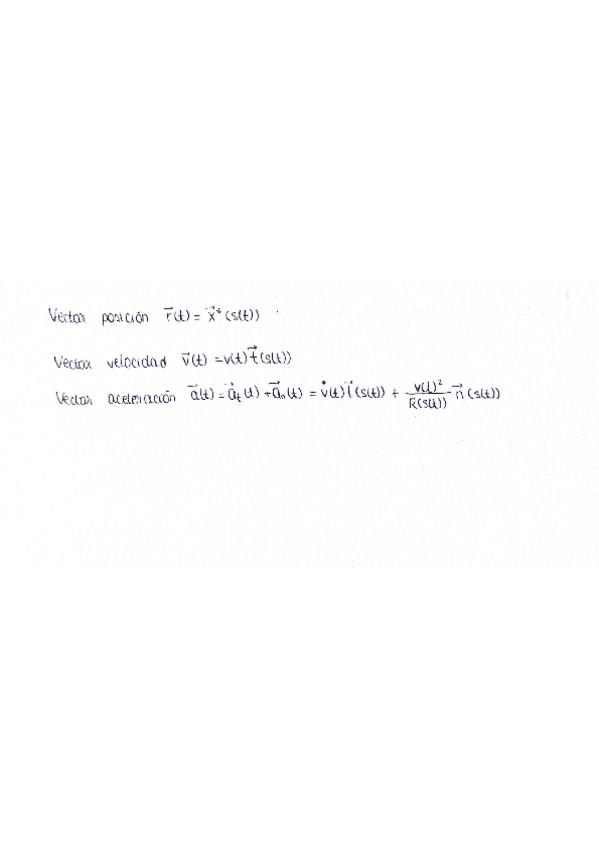 Vector posición r⃗(t) = x⃗*(s(t))
Vector velocidad v⃗(t) = v(t) t⃗(s(t))
Vector aceleración a⃗(t) = a⃗ₜ(t) + a⃗ₙ(t) = v̇(t) t⃗(s(t)) + v(t)²/R(s(t)) n⃗(s(t))